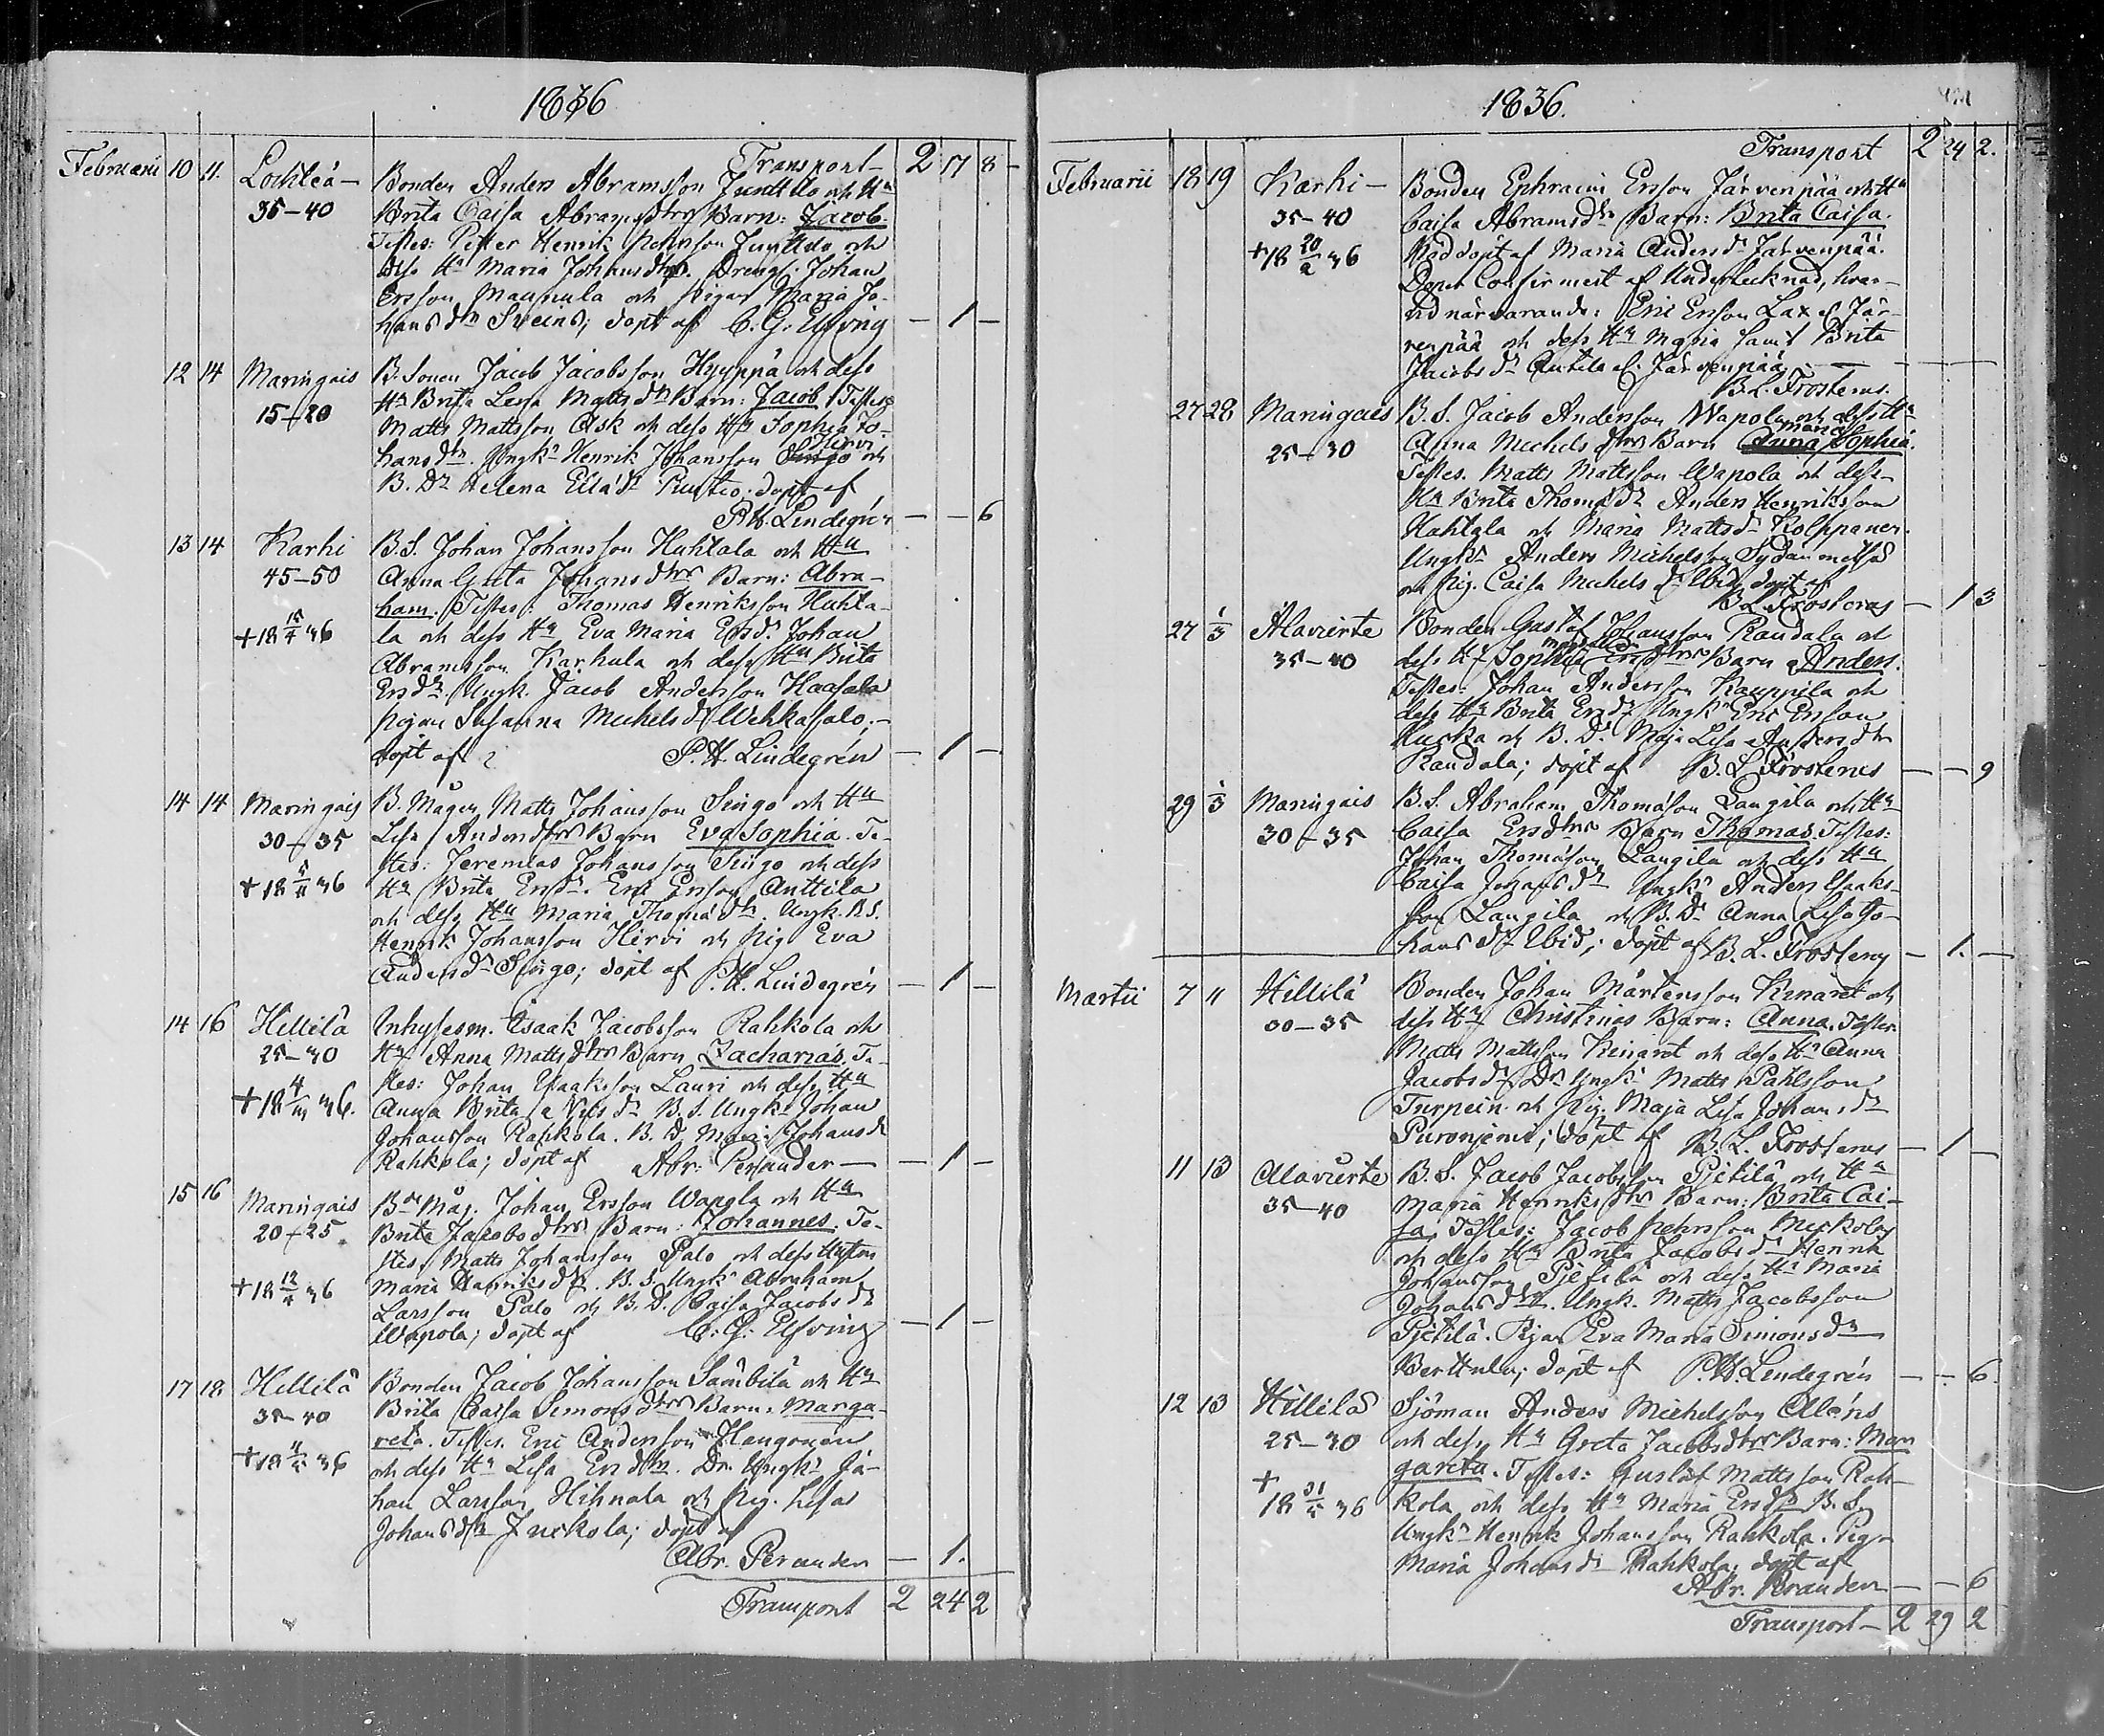 1836
Transport 2 17 8
Februarii 10 11. Lochteå Bonden Anders Abramsson Junttila och Hu
35-40 Brita Caisa Abramsdtrs Barn: Jacob.
Testes: Petter Henrik Pehrsson Junttila och
dess Hu Maria Johansdtr. Dreng. Johan
Ersson Maunula och Pigan Maria Jo-
hansdtr Sveins; döpt af C. G. Elfving — 1 —
12 14 Maringais B. Sonen Jacob Jacobsson Hyyppä och dess
15-20 Hu Brita Lisa Mattsdtrs Barn: Jacob Testes
Matts Mattsson Ask och dess Hu Sophia Jo-
Hirvi
hansdtr. Ungk. Henrik Johansson Singo och
B. Dr Helena Eliædr Puutio. döpt af
P. H. Lindegrén — — 6
13 14 Karhi B. S. Johan Johansson Huhtala och Hu
45-50 Anna Greta Johansdtrs Barn: Abra-
ham. Testes: Thomas Henriksson Huhta-
+18 15/4 36 la och dess Hu Eva Maria Ersdr. Johan
Abramsson Karhula och dess Hu Brita
Ersdr. Ungk. Jacob Andersson Haasala
Pigan Susanna Michelsdr Wehkasalo;
döpt af P. H. Lindegrén — 1 —
14 14 Maringais B. Mågen Matts Johansson Singo och Hu
30-35 Lisa Andersdtrs Barn Eva Sophia. Te-
stes: Jeremias Johansson Singo och dess
+18 36 Hu Brita Ersdr. Eric Ersson Anttila
och dess Hu Maria Thomædtr. Ungk. B. S.
Henrik Johansson Hirvi och Pig. Eva
Andersdr Singo; döpt af P. H. Lindegrén — 1 —
14 16 Hillilä Inhysesm. Isaak Jacobsson Rahkola och
25-30 Hu Anna Mattsdtrs Barn Zacharias. Te-
stes: Johan Isaaksson Lauri och dess Hu
+18 36. Anna Brita dr. B. S. Ungk. Johan
Johansson Rahkola. B. D. Maria Johansdr
Rahkola; döpt af Abr. Perander — — 1 —
15 16 Maringais Bde Måg. Johan Ersson Wapola och Hu
20-25 Brita Jakobsdtrs Barn: Johannes. Te-
stes. Matts Johansson Palo och dess Hustru
+18 12/4 36 Maria Henriksdtr. B. S. Ungk. Abraham
Larsson Palo och B. D. Caisa Jacobsdr
Wapola; döpt af C. G. Elfving — 1 —
17 18 Hillilä Bonden Jacob Johansson Sämbilä och Hu
35-40 Brita Caisa Simonsdtrs Barn: Marga-
reta. Testes. Eric Andersson Haugonen
+18 36 och dess Hu Lisa Ersdtr. Dr. Ungk. Jo-
han Larsson Hihnala och Pig. Lisa
Johansdtr Juckola; döpt af
Abr. Perander — 1.
Transport 2 24 2
1836.
Transport 2 24 2.
Februarii 18 19 Karhi Bonden Ephraim Ersson Järvenpää och Hu
35-40 Caisa Abramsdtr Barn: Brita Caisa.
+18 20/2 36 Nöddöpt af Maria Andersdr Järvenpää.
Dopet Confirmert af Undertecknad, hvar-
vid närvarande: Eric Ersson Lax el. Jär-
venpää och dess Hu Maria samt Brita
Jacobsdr Antila el. Järvenpää. — — —
B. L. Frosterus.
27 28 Maringais B. S. Jacob Andersson Wapola och dess Hu
Maria
25-30 Anna Michelsdtrs Barn Anna Sophia.
Testes. Matts Mattsson Wapola och dess
Hu Brita Thomædr Anders Henriksson
Hahtala och Maria Mattsdr Kolppanen.
Ungk. Anders Michelsson Sydänmetsä
och Pig. Caisa Michelsdr Ibid; döpt af
B. L. Frosterus — 1 3
27 1/3 Alavierte Bonden Gustaf Johansson Raudala och
35-40 dess Hu Sophia Ersdtrs Barn Anders.
Testes: Johan Andersson Kauppila och
dess Hu Brita Ersdr Ungk. Eric Ersson
och B. D. Maja Lisa Andersdtr
Raudala; döpt af B. L. Frosterus — — 9
29 1/3 Maringais B. S. Abraham Thomasson Laugila och Hu
30-35 Caisa Ersdtrs Barn Thomas. Testes:
Johan Thomasson Laugila och dess Hu
Caisa Johansdr Ungk. Anders Isaaks-
son Laugila och B. D. Anna Lisa Jo-
hansdr Ibid; döpt af B. L. Frosterus — 1. —
Martii 7 11 Hillilä Bonden Johan Mårtensson Kinaret och
30-35 dess Hu Christinas Barn: Anna. Testes
Matts Mattsson Kinaret och dess Hu Anna
Jacobsdr Dr. Ungk. Matts Pahlsson
Turpein. och Pig. Maja Lisa Johansdr
Puronjemi; döpt af B. L. Frosterus — 1 —
11 13 Alavierte B. S. Jacob Jacobsson Pjetilä och Hu
35-40 Maria Henriksdtrs Barn: Brita Cai-
sa. Testes: Jacob Pehrsson Mickola
och dess Hu Brita Jacobsdr. Henrik
Johansson Pjetilä och dess Hu Maria
Johansdtr. Ungk. Matts Jacobsson
Pjetilä. Pigan Eva Maria Simonsdr
Berttula; döpt af P. H. Lindegrén — — 6.
12 13 Hillilä Sjöman Anders Michelsson Aléns
25-30 och dess Hu Greta Jacobsdtrs Barn: Mar
+ gareta. Testes: Gustaf Mattsson Rah-
18 36 kola och dess Hu Maria Ersdr B. S.
Ungk. Henrik Johansson Rahkola. Pig.
Maria Johansdr Rahkola; döpt af
Abr. Perander — — 6
Transport — 2 29 2